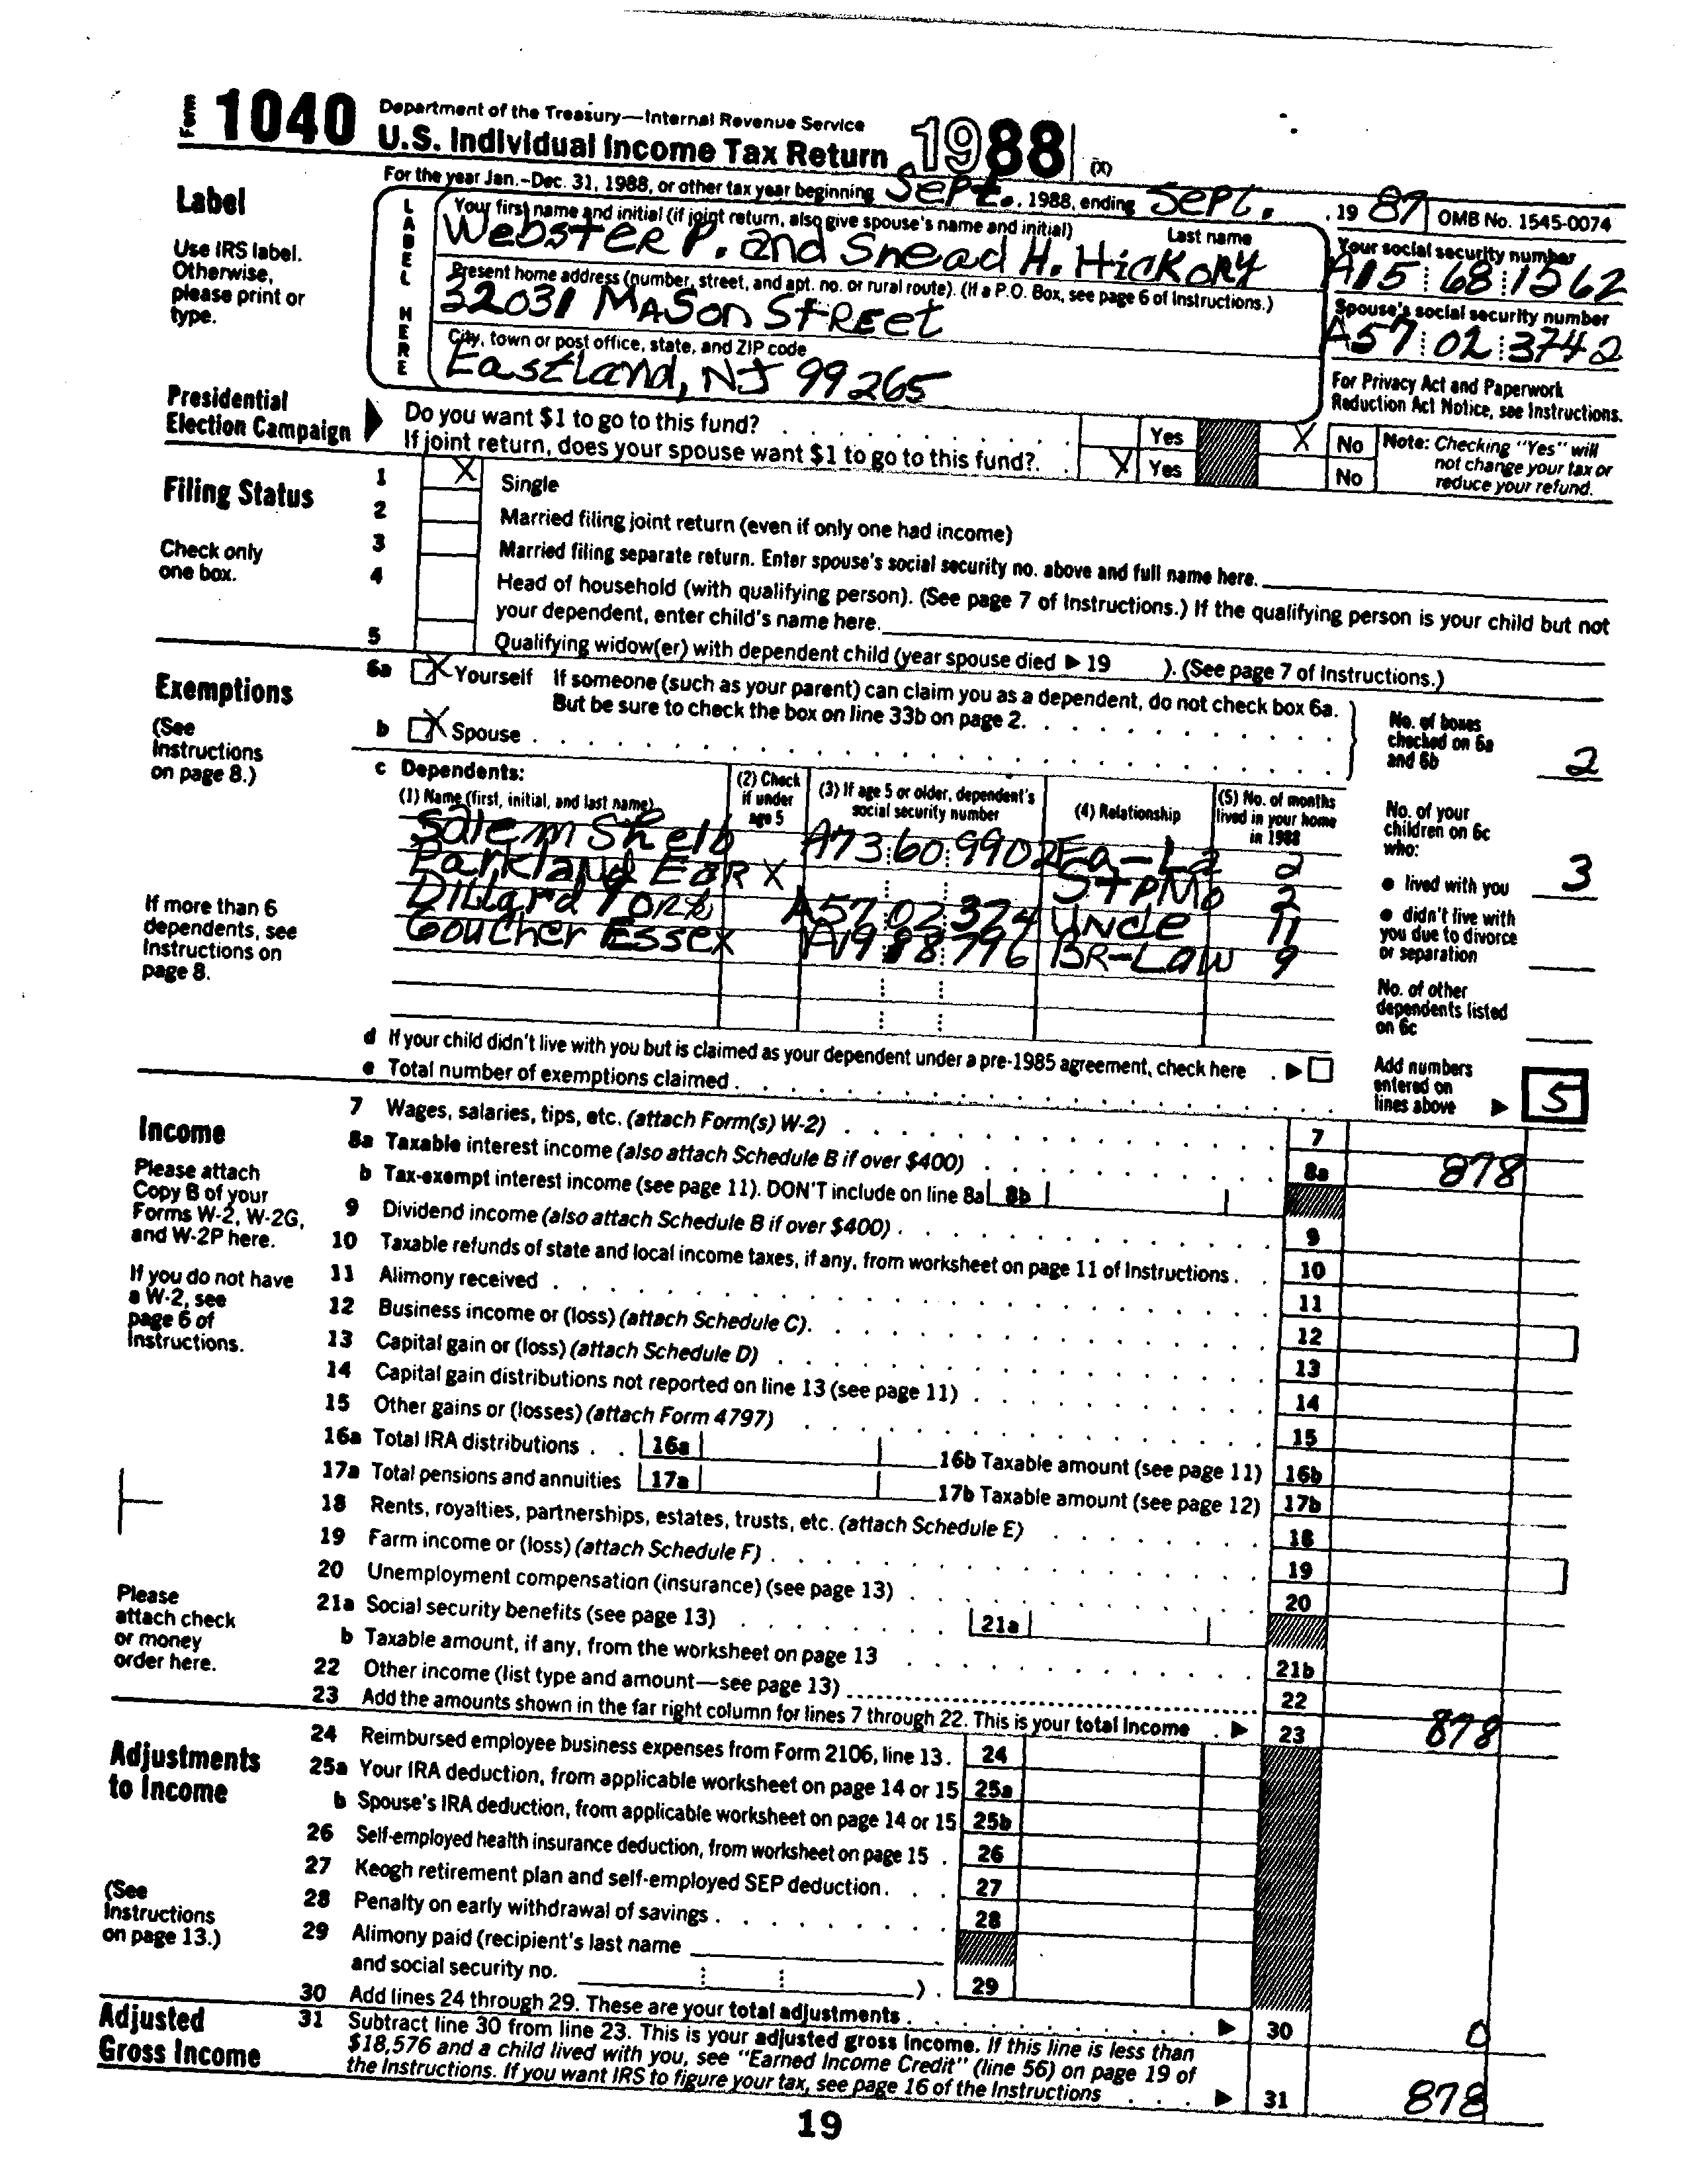 Form 1040 Department of the Treasury—Internal Revenue Service
U.S. Individual Income Tax Return 1988 (X)
For the year Jan.–Dec. 31, 1988, or other tax year beginning Sept., 1988, ending Sept., 19 87 OMB No. 1545-0074
Label
Use IRS label.
Otherwise,
please print or
type.
LABEL HERE
Your first name and initial (if joint return, also give spouse's name and initial) Last name
Webster P. and Snead H. Hickory
Your social security number
A15 68 1562
Present home address (number, street, and apt. no. or rural route). (If a P.O. Box, see page 6 of Instructions.)
32031 Mason Street
Spouse's social security number
A57 02 3742
City, town or post office, state, and ZIP code
Eastland, NJ 99265
For Privacy Act and Paperwork
Reduction Act Notice, see Instructions.
Presidential
Election Campaign
Do you want $1 to go to this fund? Yes X No
If joint return, does your spouse want $1 to go to this fund? X Yes No
Note: Checking "Yes" will
not change your tax or
reduce your refund.
Filing Status
Check only
one box.
1 X Single
2 Married filing joint return (even if only one had income)
3 Married filing separate return. Enter spouse's social security no. above and full name here.
4 Head of household (with qualifying person). (See page 7 of Instructions.) If the qualifying person is your child but not
your dependent, enter child's name here.
5 Qualifying widow(er) with dependent child (year spouse died ▶ 19 ). (See page 7 of Instructions.)
Exemptions
(See
Instructions
on page 8.)
6a X Yourself If someone (such as your parent) can claim you as a dependent, do not check box 6a.
But be sure to check the box on line 33b on page 2.
b X Spouse
No. of boxes
checked on 6a
and 6b 2
c Dependents:
(1) Name (first, initial, and last name)
(2) Check
if under
age 5
(3) If age 5 or older, dependent's
social security number
(4) Relationship
(5) No. of months
lived in your home
in 1988
Salem Shelb A73 60 9902 Fa-La 2
Parkland Ear X StpMo 2
Dillard York A57 02 374 Uncle 11
Goucher Essex BR-Law 9
No. of your
children on 6c
who:
● lived with you 3
● didn't live with
you due to divorce
or separation
No. of other
dependents listed
on 6c
If more than 6
dependents, see
Instructions on
page 8.
d If your child didn't live with you but is claimed as your dependent under a pre-1985 agreement, check here ▶
e Total number of exemptions claimed
Add numbers
entered on
lines above ▶ 5
Income
Please attach
Copy B of your
Forms W-2, W-2G,
and W-2P here.
If you do not have
a W-2, see
page 6 of
Instructions.
Please
attach check
or money
order here.
7 Wages, salaries, tips, etc. (attach Form(s) W-2) 7
8a Taxable interest income (also attach Schedule B if over $400) 8a 878
b Tax-exempt interest income (see page 11). DON'T include on line 8a 8b
9 Dividend income (also attach Schedule B if over $400) 9
10 Taxable refunds of state and local income taxes, if any, from worksheet on page 11 of Instructions 10
11 Alimony received 11
12 Business income or (loss) (attach Schedule C) 12
13 Capital gain or (loss) (attach Schedule D) 13
14 Capital gain distributions not reported on line 13 (see page 11) 14
15 Other gains or (losses) (attach Form 4797) 15
16a Total IRA distributions 16a 16b Taxable amount (see page 11) 16b
17a Total pensions and annuities 17a 17b Taxable amount (see page 12) 17b
18 Rents, royalties, partnerships, estates, trusts, etc. (attach Schedule E) 18
19 Farm income or (loss) (attach Schedule F) 19
20 Unemployment compensation (insurance) (see page 13) 20
21a Social security benefits (see page 13) 21a
b Taxable amount, if any, from the worksheet on page 13 21b
22 Other income (list type and amount—see page 13) 22
23 Add the amounts shown in the far right column for lines 7 through 22. This is your total income ▶ 23 878
Adjustments
to Income
(See
Instructions
on page 13.)
24 Reimbursed employee business expenses from Form 2106, line 13. 24
25a Your IRA deduction, from applicable worksheet on page 14 or 15 25a
b Spouse's IRA deduction, from applicable worksheet on page 14 or 15 25b
26 Self-employed health insurance deduction, from worksheet on page 15 26
27 Keogh retirement plan and self-employed SEP deduction 27
28 Penalty on early withdrawal of savings 28
29 Alimony paid (recipient's last name
and social security no. ) 29
30 Add lines 24 through 29. These are your total adjustments ▶ 30 0
Adjusted
Gross Income
31 Subtract line 30 from line 23. This is your adjusted gross income. If this line is less than
$18,576 and a child lived with you, see "Earned Income Credit" (line 56) on page 19 of
the Instructions. If you want IRS to figure your tax, see page 16 of the Instructions ▶ 31 878
19